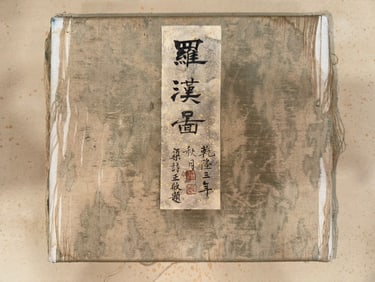 羅漢圖
乾隆三年
秋月
梁詩正敬題